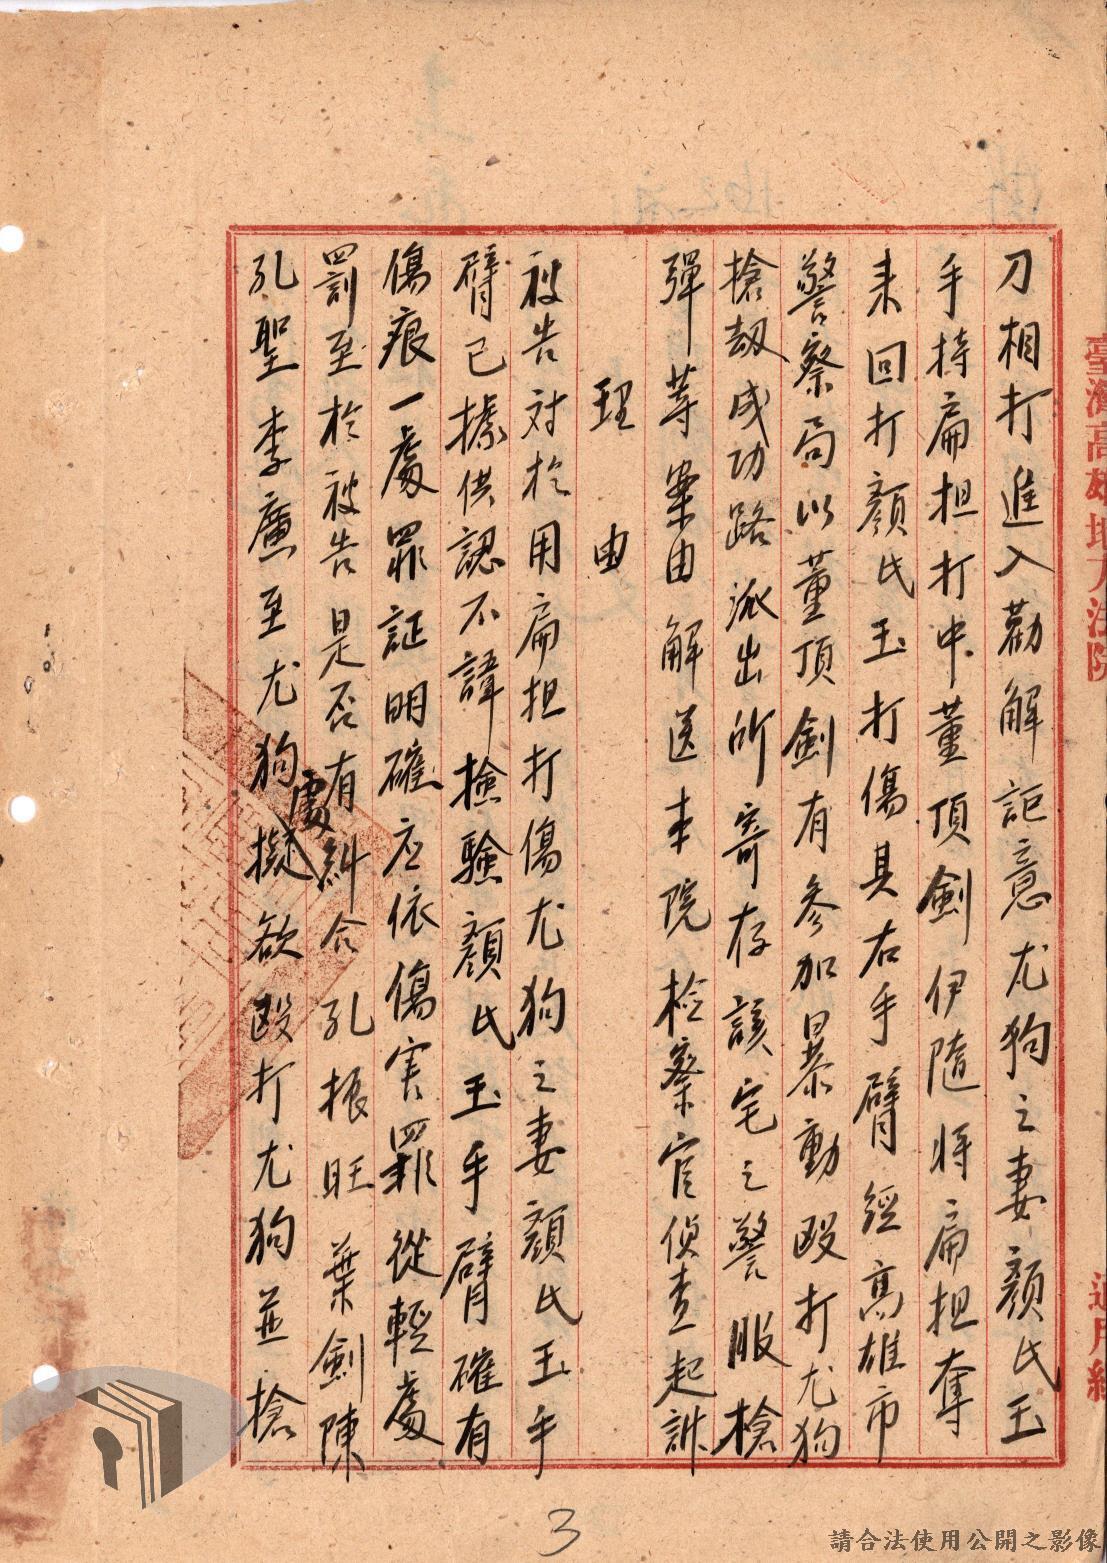 刀相打進入勸解詎意尤狗之妻顏氏玉
手持扁担打中董頂劍伊隨將扁担奪
来回打顏氏玉打傷其右手臂經高雄市
警察局以董頂劍有參加暴動毆打尤狗
搶劫成功路派出所寄存該宅之警服槍
彈等案由解送本院检察官侦查起訴
理由
被告对於用扁担打傷尤狗之妻顏氏玉手
臂已據供認不諱檢驗顏氏玉手臂確有
傷痕一處罪証明確应依傷害罪從輕處
罰至於被告是否有糾合孔振旺葉劍陳
孔聖李廉至尤狗處擬欲毆打尤狗並搶
臺灣高雄地方法院
通用紙
3
請合法使用公開之影像